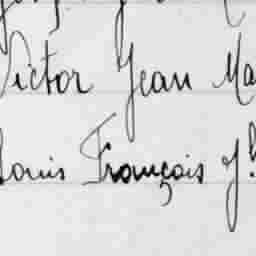 Victor Jean Ma
Louis François Jh